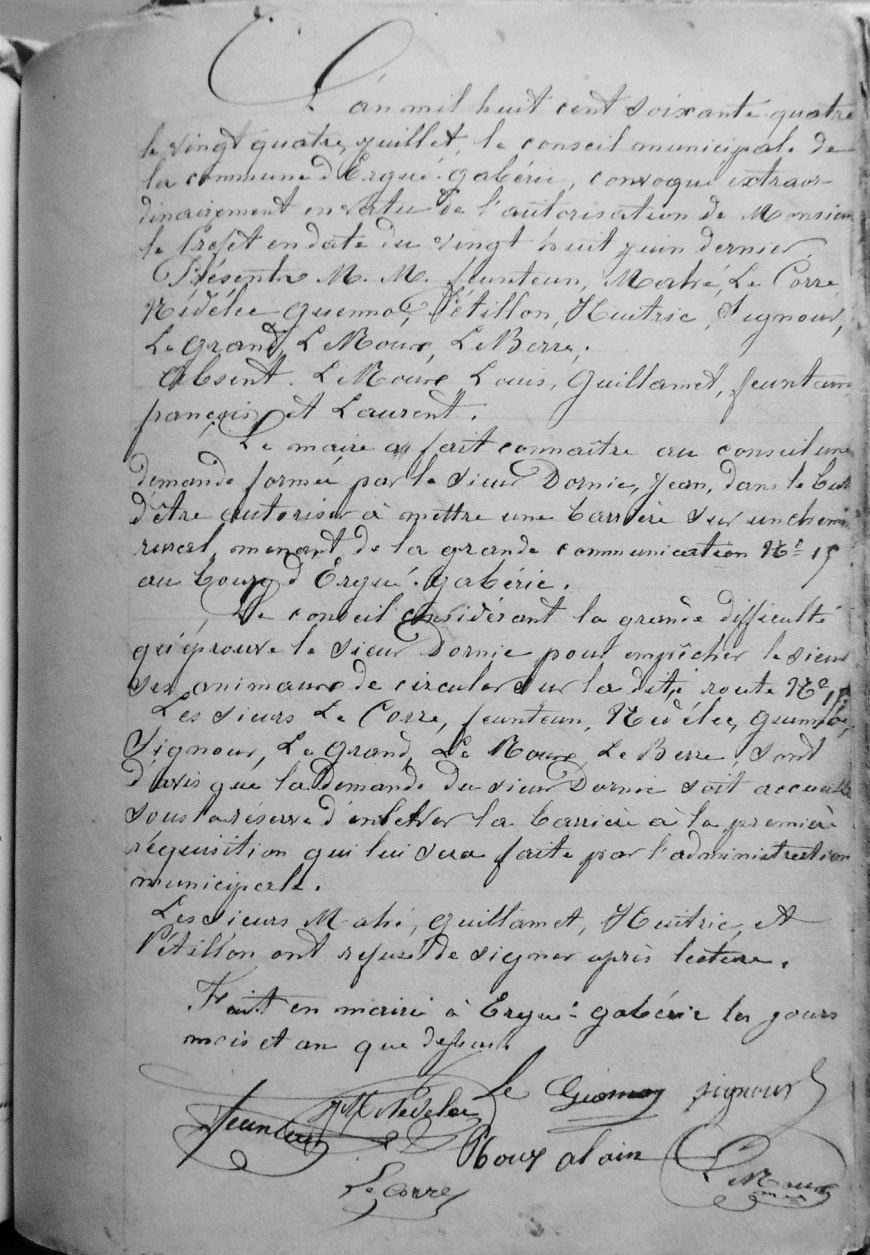 L'an mil huit cent soixante quatre
le vingt quatre juillet, le conseil municipale de
la commune d'Ergué-gabéric, convoqué extraor
dinairement en vertu de l'autorisation de Monsieur
le Préfet en date du vingt huit juin dernier.
Présents M. M. feunteun, Mahé, Le Corre,
Nédélec guennoc, Pétillon, Huitric, Signour,
Le grand, Le Roux, Le Berre.
Absent. Le Roux Louis, Guillamet, feunteun
françois, et Laurent.
Le maire a fait connaître au conseil une
demande formée par le sieur Dornic, Jean, dans le but
d'être autoriser à mettre une barrière sur un chemin
rural, menant de la grande communication No 15
au bourg d'Ergué-gabéric.
Le conseil considérant la grande difficulté
qu'éprouve le sieur Dornic pour empêcher le sieur
ses animaux de circuler sur la dite route No 15
Les sieurs Le Corre, feunteun, Nédélec, guennoc,
Signour, Le grand, Le Roux, Le Berre, sont
d'avis que la Demande du sieur Dornic soit accueilli
sous la réserve d'enlever la barrière à la première
réquisition qui lui sera faite par l'administration
municipale.
Les sieurs Mahé, guillamet, Huitric, et
Pétillon ont refusé de signer après lecture.
Fait en mairie à Ergué-gabéric les jours
mois et an que dessus.
Le Guennoc signour
feunteun Nédélec
Roux alain Le Roux
Le Corre